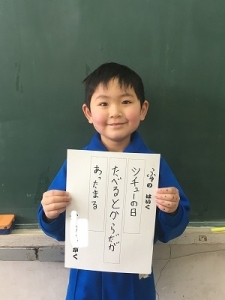 ふゆの はいく
シチューの日
たべるとからだが
あったまる